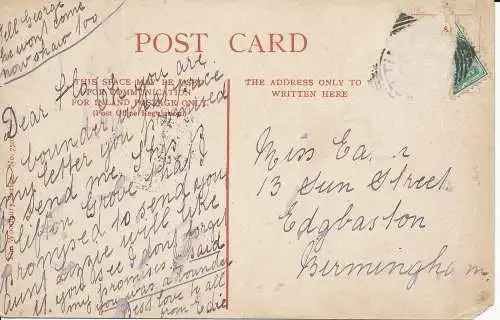 Tell George
he won't come
now show too
POST CARD
THIS SPACE MAY BE USED
FOR COMMUNICATION
FOR INLAND POSTAGE ONLY.
(Post Office Regulation)
THE ADDRESS ONLY TO BE
WRITTEN HERE
Dear you are
bounder
my letter you
send me. This is
Clifton Grove that I
promised to send you
Aunt Lizzie will like
it. you see I dont forget
my promises. I said
you was a bounder
Best love to all
from Edie
Miss Ea
13 Sun Street
Edgbaston
Birmingham.